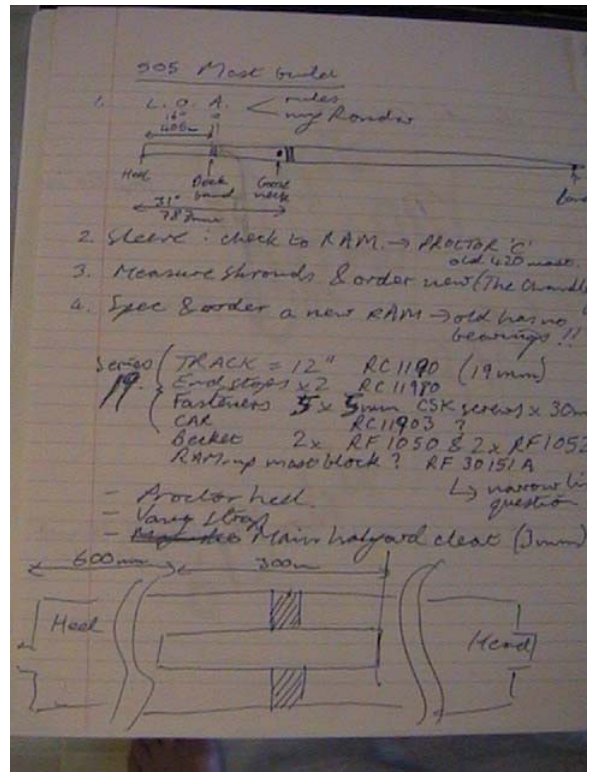 505 Mast build
1. L. O. A. < rules
my Rondar
16"
406m
Heel Deck band Goose neck
31"
787mm
2. Sleeve : check to RAM. → PROCTOR 'C'
old 420 mast.
3. Measure Shrouds & order new (The Chandle
4. Spec & order a new RAM → old has no
bearings !!
Series 19.
TRACK = 12" RC 1190 (19mm)
End stops x 2 RC 11980
Fasteners 5 x 5mm CSK screws x 30m
CAR RC 11903 ?
Becket 2x RF 1050 & 2x RF 1052
RAM up mast block ? RF 30151A
↳ narrow
question
- Proctor heel.
- Vang strap
- Main halyard cleat (3mm)
600mm 300m
Heel Head